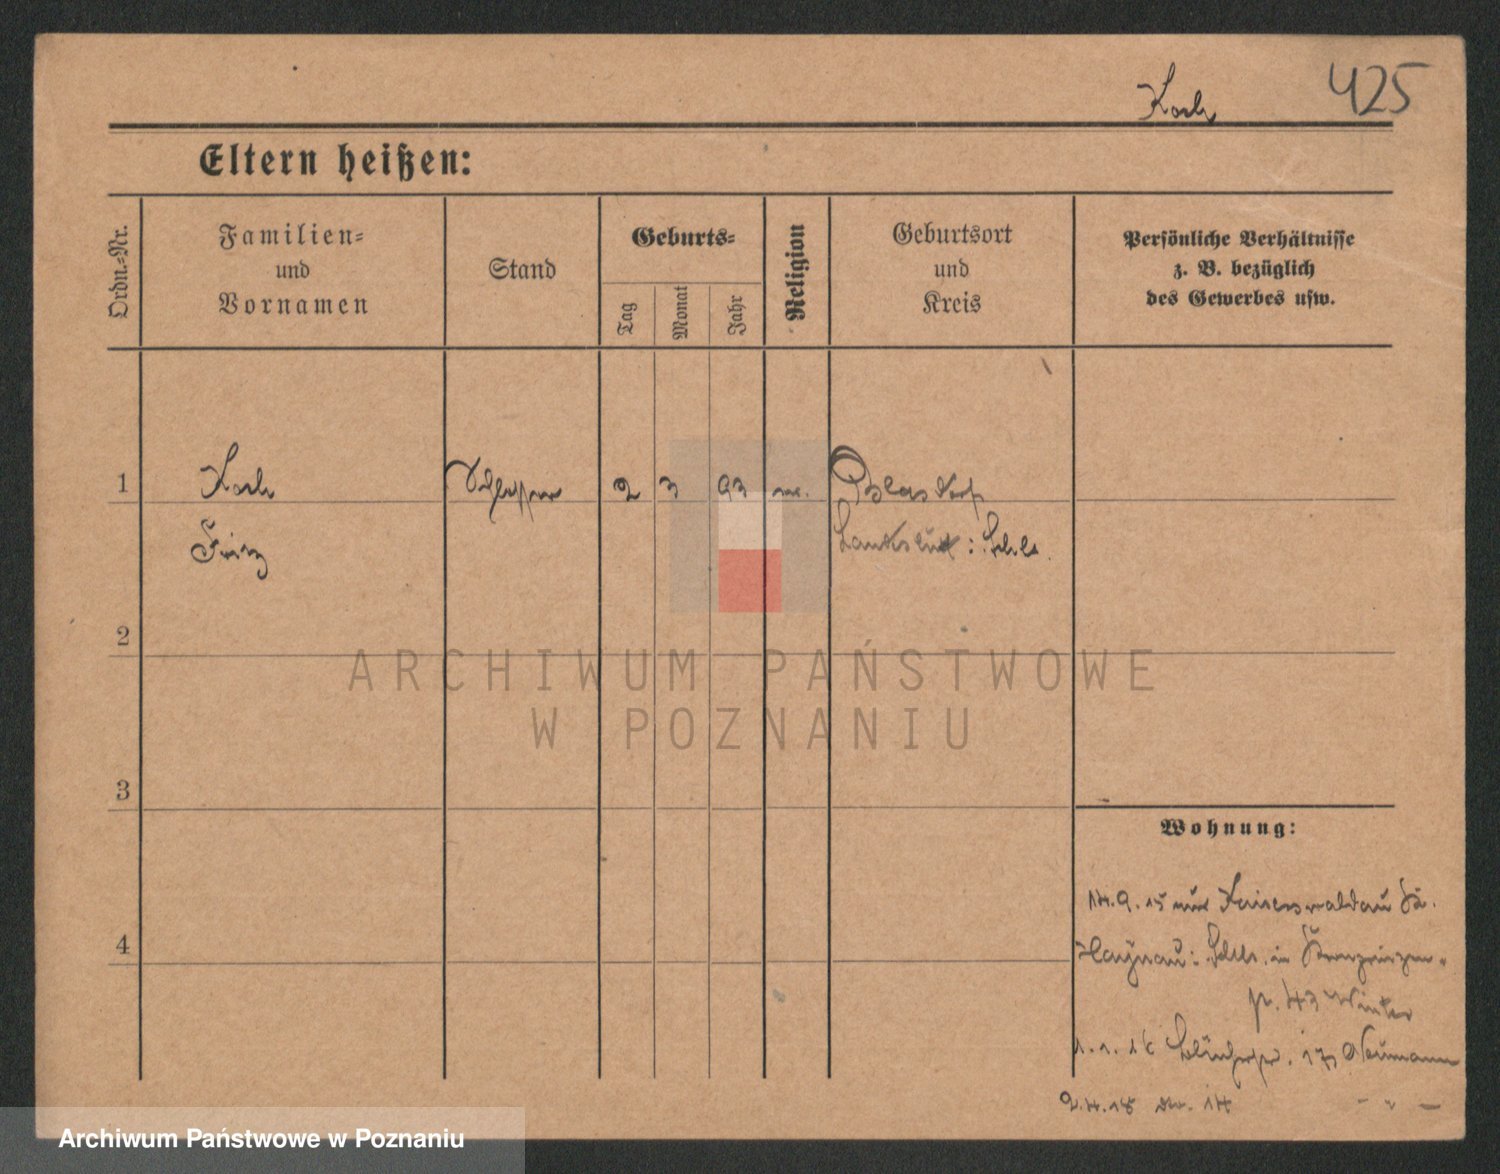 Koch 425
Eltern heißen:
Ordn.-Nr.
Familien-
und
Vornamen
Stand
Geburts-
Tag
Monat
Jahr
Religion
Geburtsort
und
Kreis
Persönliche Verhältnisse
z. B. bezüglich
des Gewerbes usw.
1 Koch 2 3 93
Fritz
2
3
4
Wohnung:
14.9.15 aus Kaiserswaldau Kr.
Haynau: Schls. in Kronprinzen-
p. 43 Winter
1.1.16 17 Neumann
2.4.18 14 - " -
ARCHIWUM PAŃSTWOWE
W POZNANIU
Archiwum Państwowe w Poznaniu